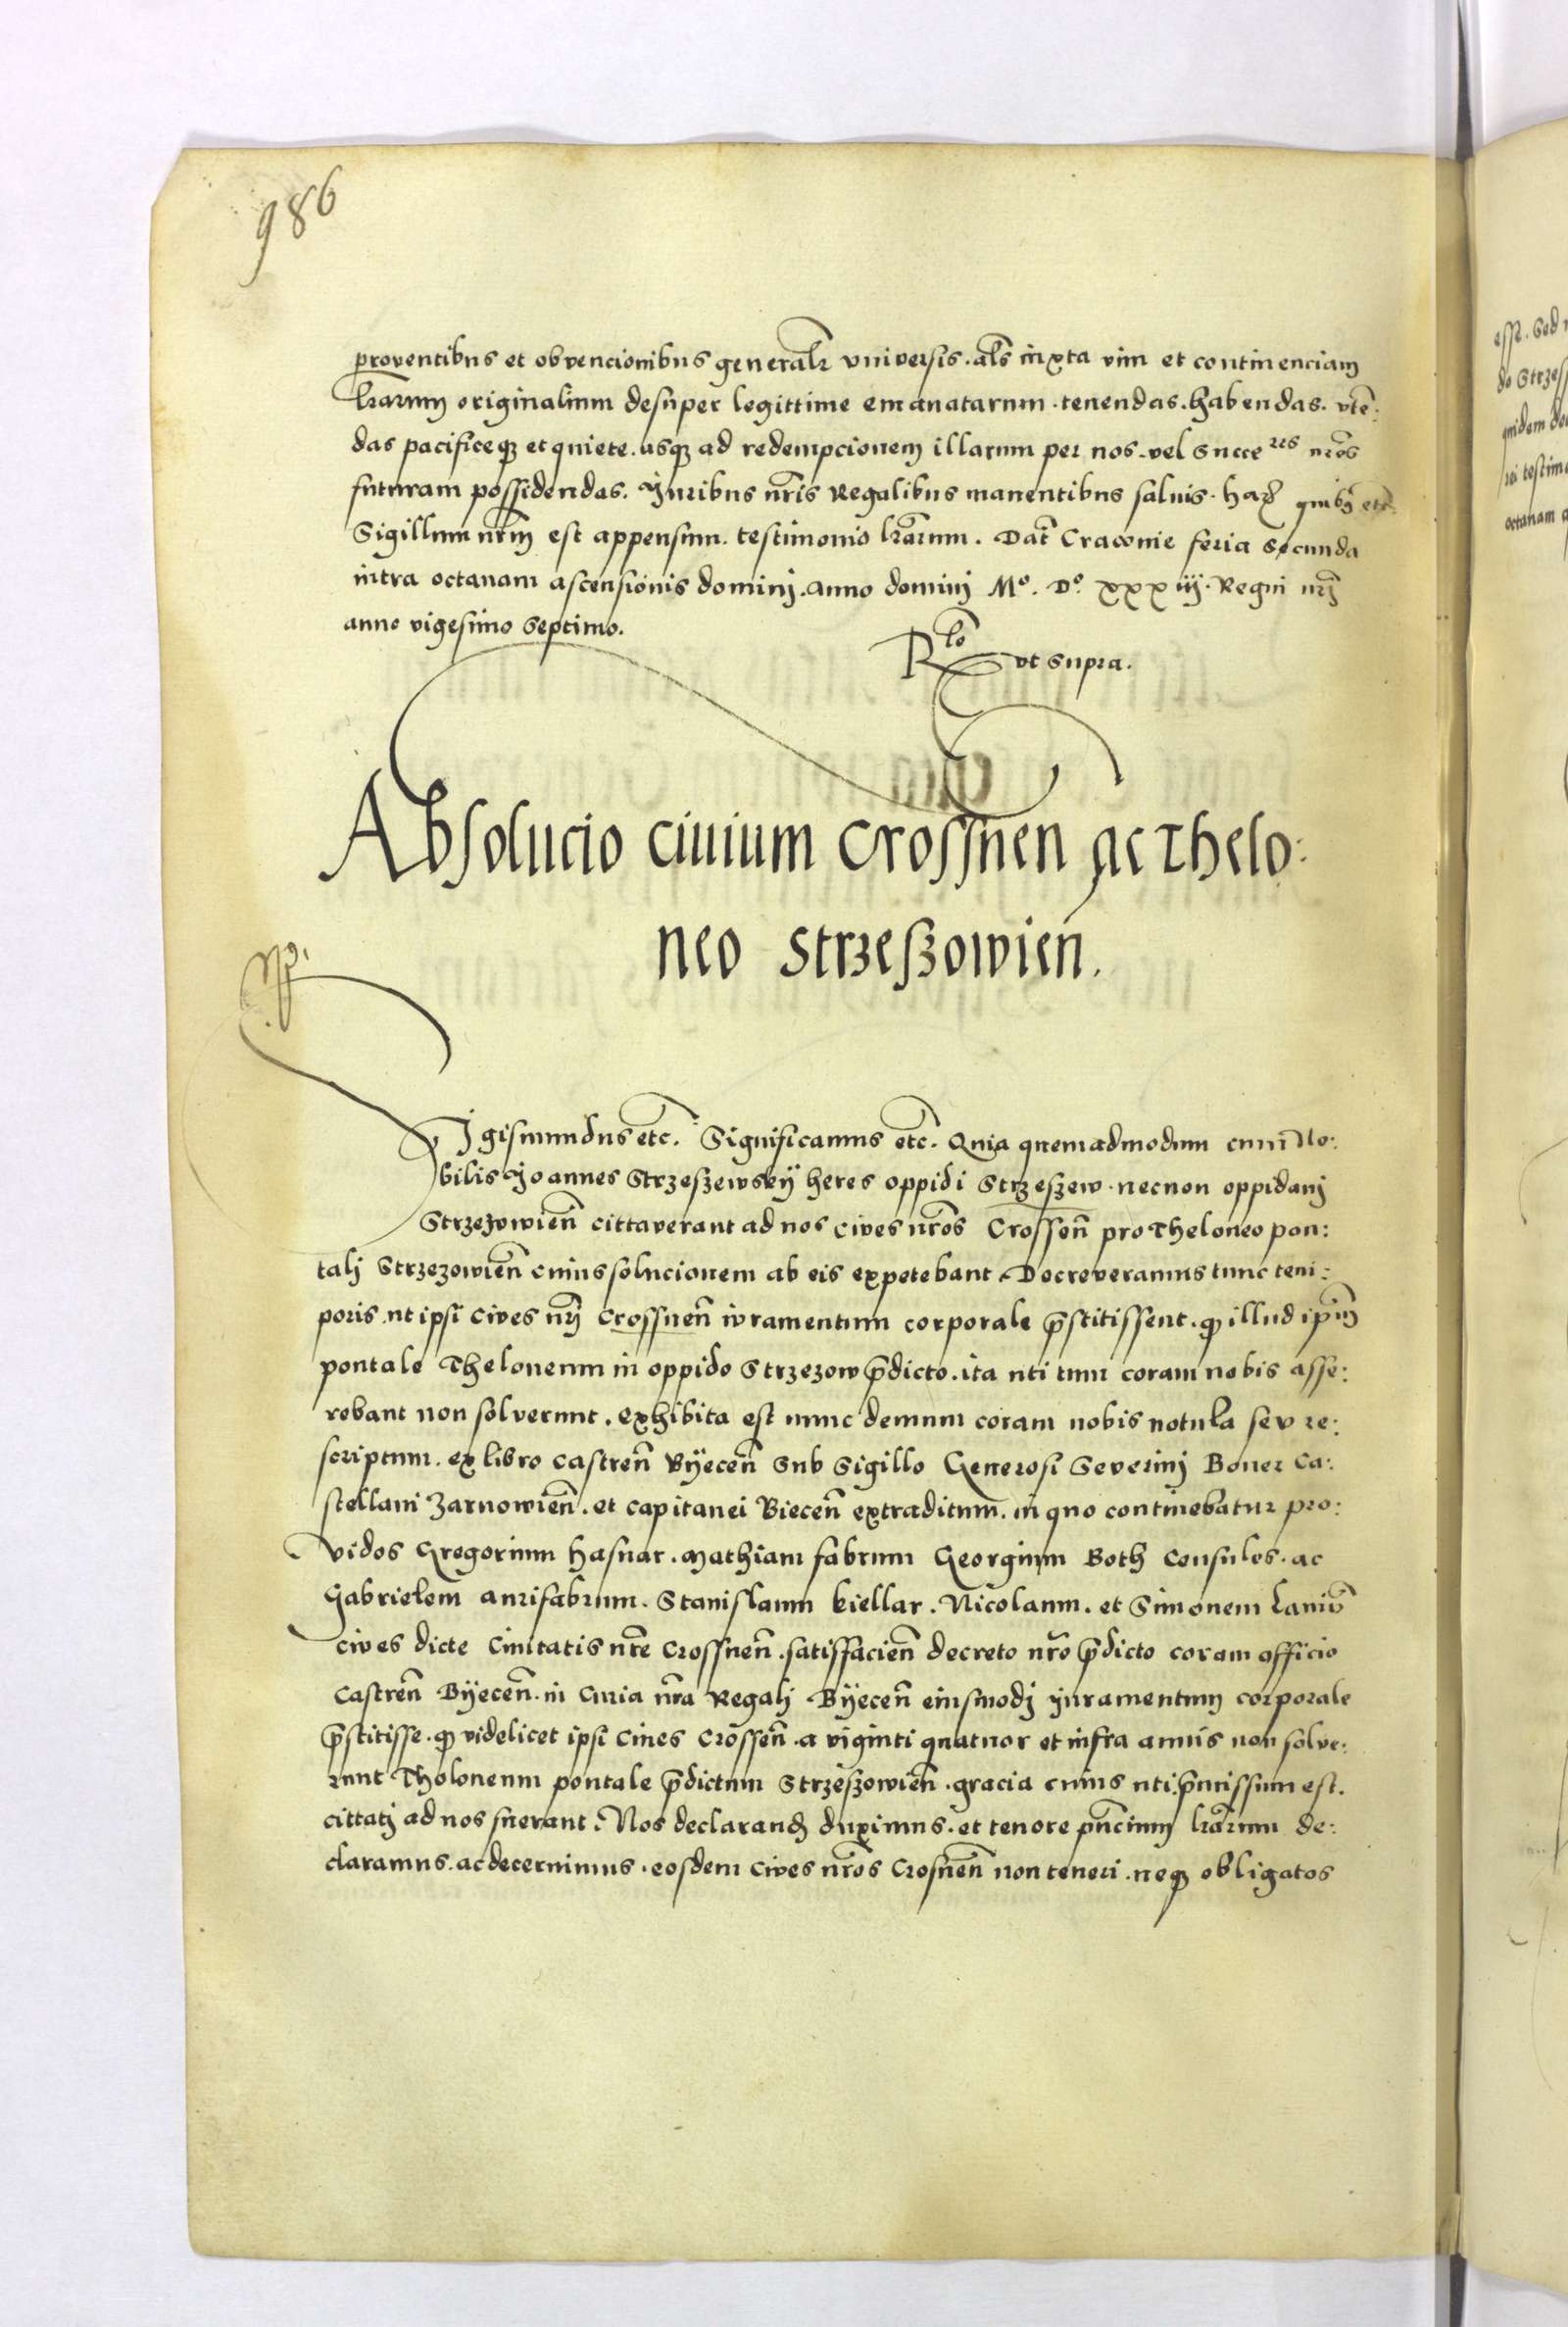 986
proventibus et obvencionibus generalr universis. als iuxta vim et continenciam
lrarum originalium desuper legittime emanatarum. tenendas. habendas. vtē:
das pacificeq₃ et quiete. usq₃ ad redempcionem illarum per nos. vel succeres nr̄os
futuram possidendas. Juribus nr̄is Regalibus manentibus saluis. harꝫ quibꝫ etc̄
Sigillum nrm̄ est appensum. testimonio lrārum. Dat̄ Cracovie feria secunda
intra octavam ascensionis dominj. Anno dominj Mº. Dº. xxxiij. Regni nrj̄
anno vigesimo Septimo.
Rlō ut supra.
Absolucio civium Crossnen̄ ac Thelo:
neo Strzeszowien̄.
Sigismundus etc. Significamus etc. Quia quemadmodum cum No:
bilis Joannes Strzeszewskÿ heres oppidi Strzeszew. necnon oppidanj
Strzezowien̄ cittaverant ad nos cives nr̄os Crossen̄ pro Theloneo pon:
talj Strzezowien̄ cuius solucionem ab eis expetebant. Decreveramus tunc tem:
poris. ut ipsi cives nrj̄ Crossnen̄ iuramentum corporale p̄stitissent. qꝫ illud ip̄m
pontale Theloneum in oppido Strzezow p̄dicto. ita uti tum coram nobis asse:
rebant non solverunt. exhibita est nunc demum coram nobis notula sev re:
scriptum. ex libro castren̄ Bÿecen̄ Sub Sigillo Generosi Severinj Boner Ca:
stellani Zarnowien̄. et capitanei Biecen̄ extraditum. in quo continebatur pro:
vidos Gregorium hasnar. Mathiam fabrum Georgium Both Consules. ac
Gabrielem aurifabrum. Stanislaum kiellar. Nicolaum. et Simonem Laniū
cives dicte Civitatis nr̄e Crossnen̄. satisfacien̄ decreto nr̄o p̄dicto coram officio
Castren̄ Bÿecen̄. in Curia nr̄a Regalj Bÿecen̄ eiusmodj juramentum corporale
p̄stitisse. qꝫ videlicet ipsi Cives Crossen̄. a viginti quatuor et infra annis non solve:
runt Theloneum pontale p̄dictum Strzeszowien̄. gracia cuius uti p̄missum est.
cittatj ad nos fuerant. Nos declarandꝫ duximus. et tenore pn̄cium lrārum de:
claramus. ac decernimus. eosdem cives nr̄os Crosnen̄ non teneri. neqꝫ obligatos